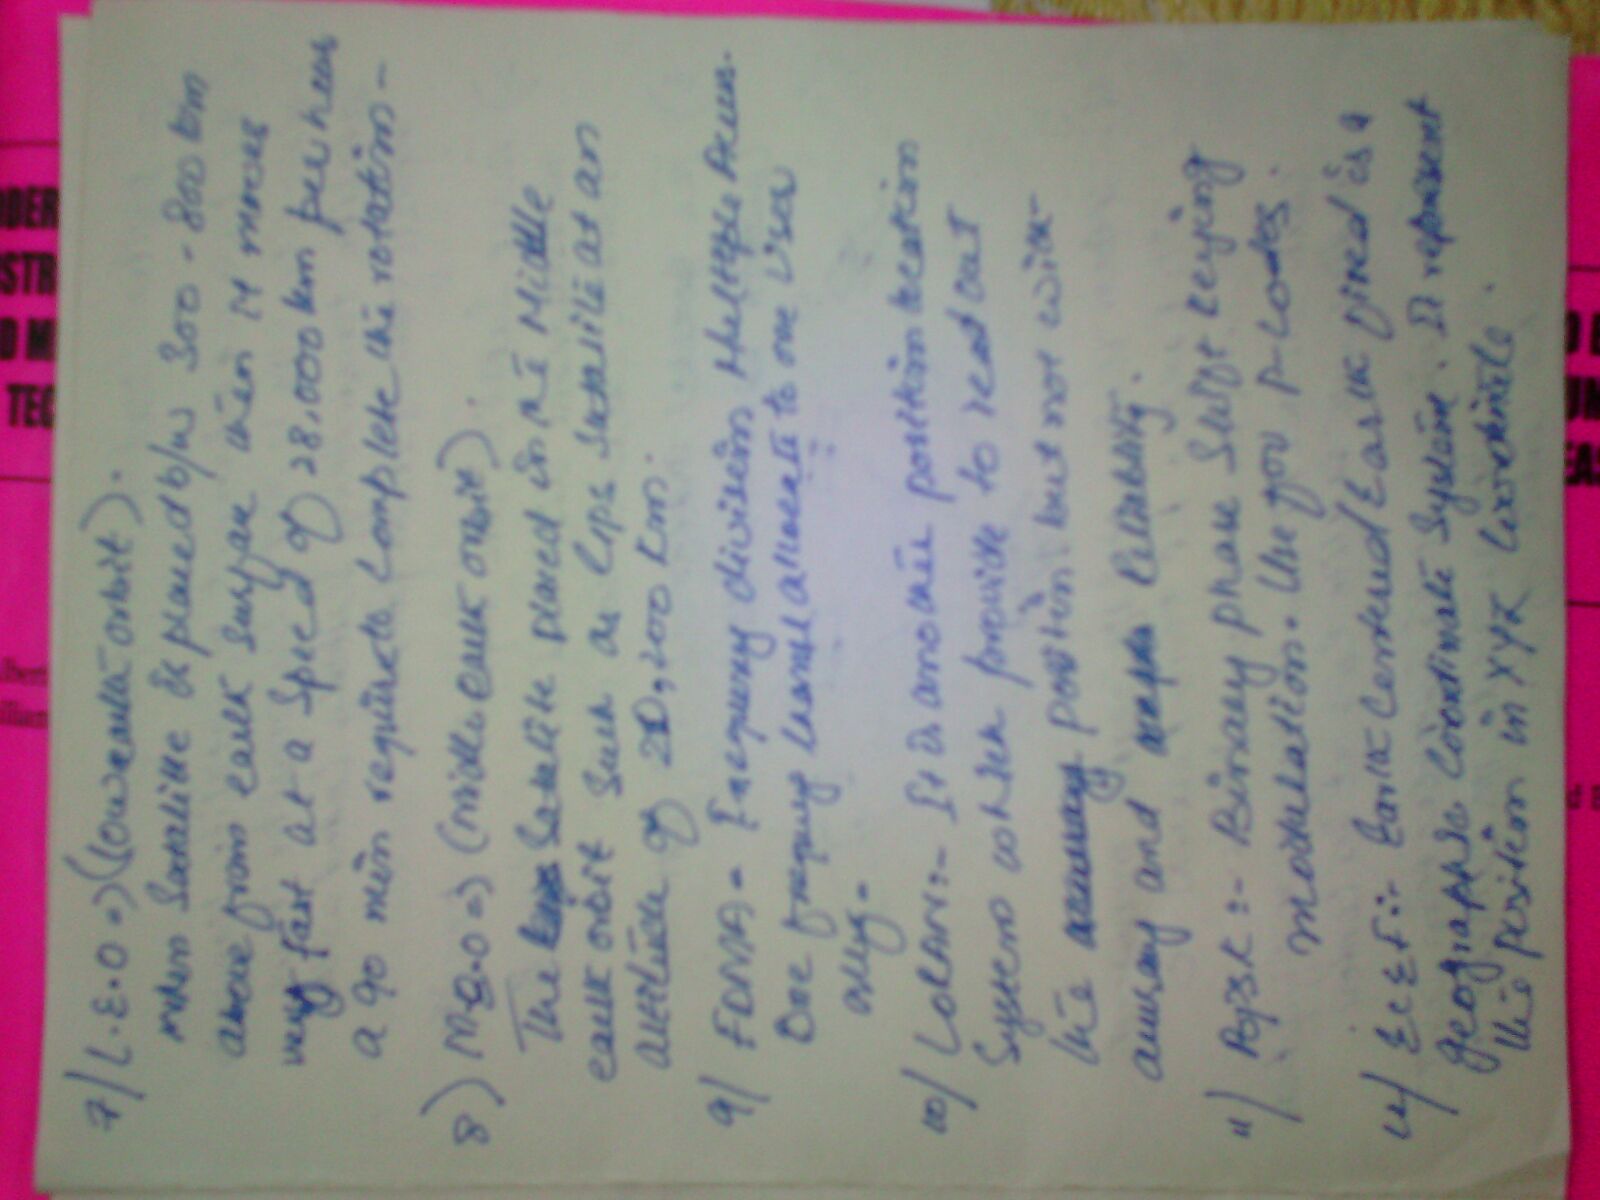 DER
STR
D M
TEC
7/ L.E.O => (low earth orbit).
when Satalitte is placed b/w 300 - 800 km
above from earth surface then it moves
very fast at a speed of 28,000 km per hour
a 90 min require to complete the rotation -
8) M.E.O => (Middle earth orbit).
The Satalite placed in the Middle
earth orbit such as Gps Satalite at an
altitude of 20,200 Km.
9/ FDMA - Frequency division Multiple Access.
One frequency channel allocate to one User
only -
10/ LORAN :- It is another position location
System which provide to read out
the position but not with
accuracy and Reliablity.
11/ BPSK :- Binary phase Shift Keying
modulation. Use for P-codes.
12/ ECEF :- Earth Centered Earth fixed is a
geographic Coordinate System. It represent
the position in XYZ Coordinate.